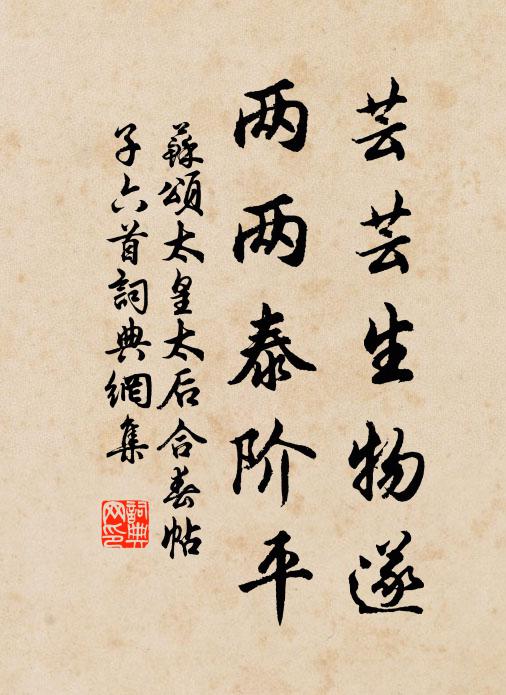 芸芸生物遂
两两泰阶平
蘇頌太皇太后合春帖
子六首詞典網集
詞典网印